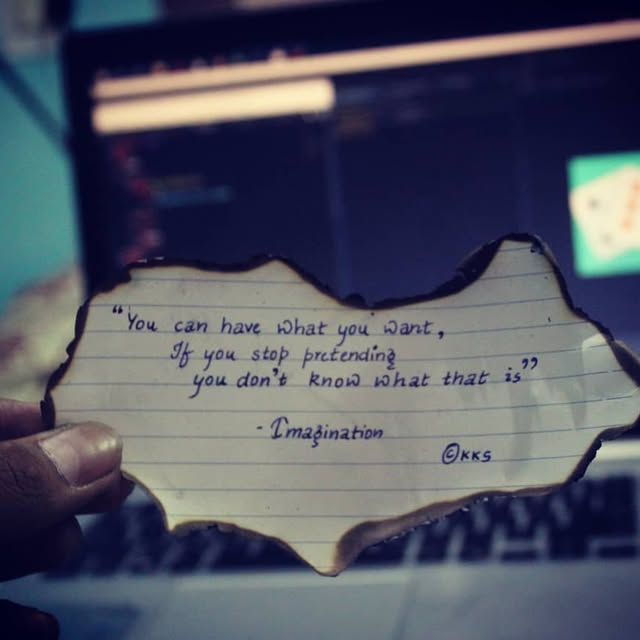 “You can have what you want,
If you stop pretending
you don't know what that is”
- Imagination
©KKS